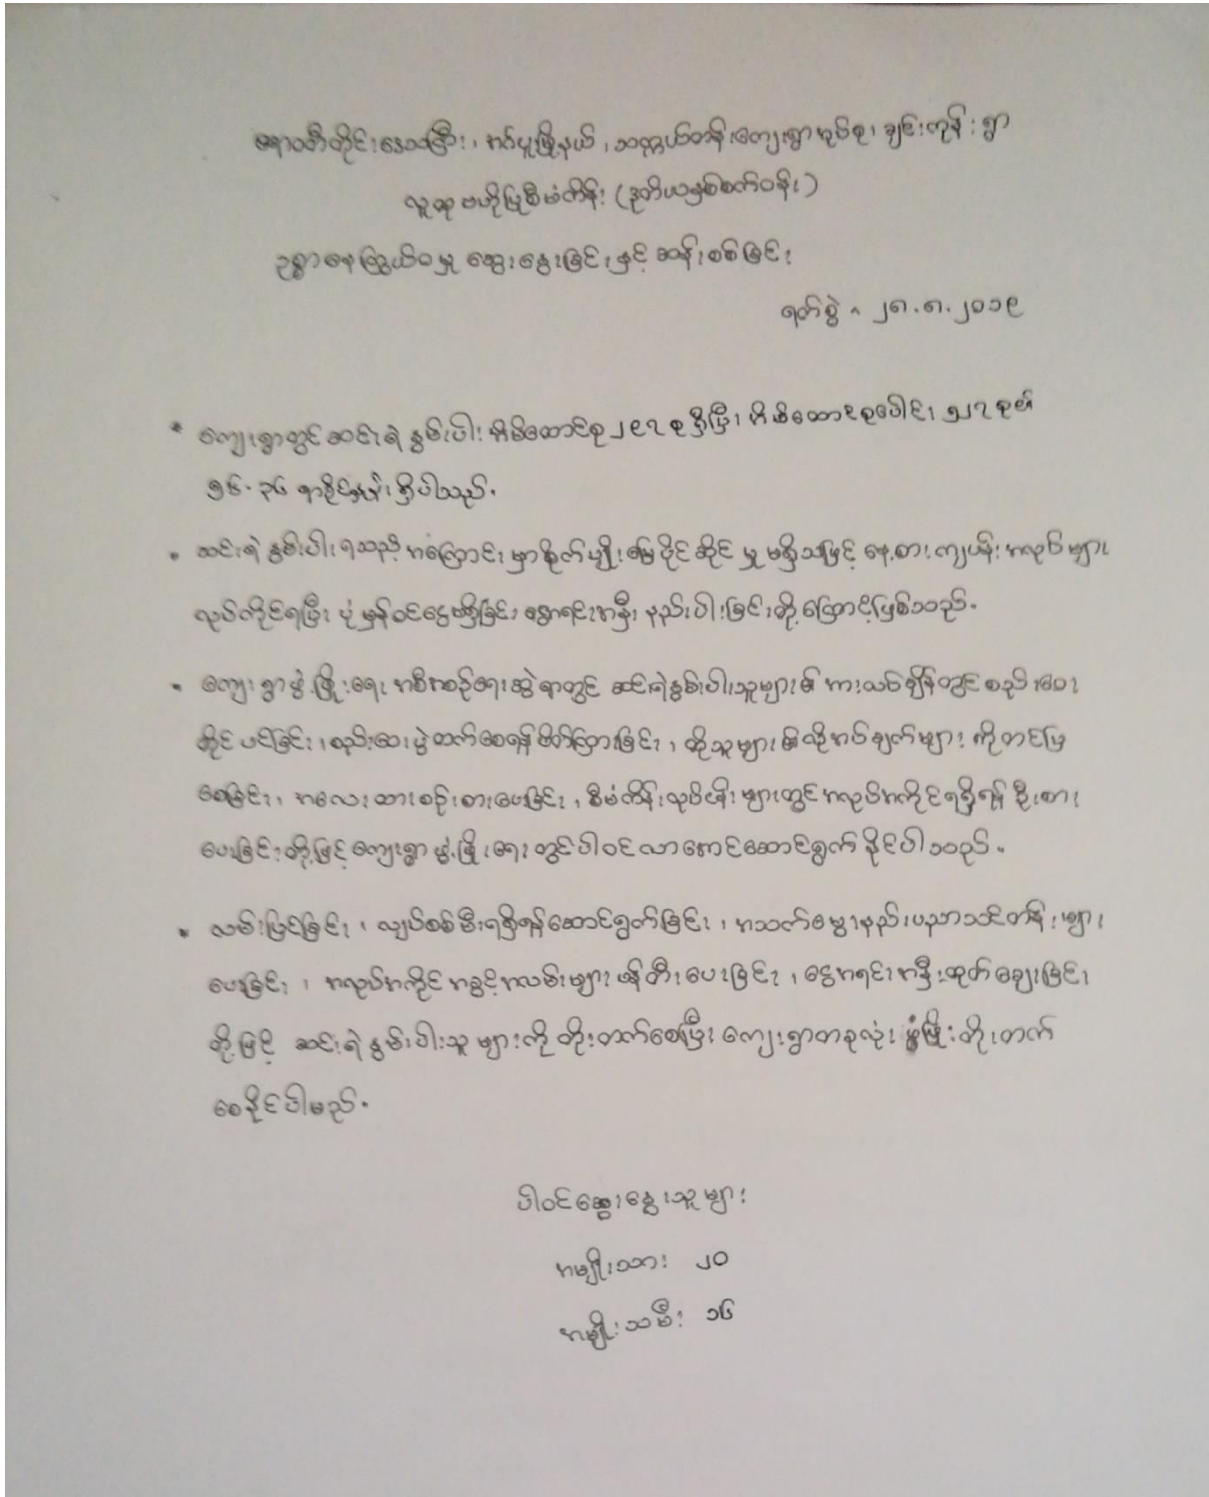 ဧရာဝတီတိုင်းဒေသကြီး၊ အင်္ဂပူမြို့နယ်၊ သက္ကယ်တန်းကျေးရွာအုပ်စု၊ ချင်းကုန်းရွာ
လူထုဗဟိုပြုစီမံကိန်း (ဒုတိယနှစ်စက်ဝန်း)
ဥစ္စာနေကြွယ်ဝမှု ဆွေးနွေးခြင်းနှင့် ဆန်းစစ်ခြင်း
ရက်စွဲ - ၂၈.၈.၂၀၁၉
* ကျေးရွာတွင်ဆင်းရဲနွမ်းပါးအိမ်ထောင်စု ၂၉၇ စုရှိပြီး အိမ်ထောင်စုပေါင်း ၅၂၇ စု၏
၅၆.၃၆ ရာခိုင်နှုန်းရှိပါသည်.
* ဆင်းရဲနွမ်းပါးရသည့်အကြောင်းမှာစိုက်ပျိုးမြေပိုင်ဆိုင်မှုမရှိသဖြင့် နေ့စားကျပန်းအလုပ်များ
လုပ်ကိုင်ရပြီး ပုံမှန်ဝင်ငွေမရှိခြင်း ငွေအရင်းအနှီးနည်းပါးခြင်းတို့ကြောင့်ဖြစ်သည်.
* ကျေးရွာဖွံ့ဖြိုးရေးအစီအစဉ်ရေးဆွဲရာတွင် ဆင်းရဲနွမ်းပါးသူများ၏အားလပ်ချိန်တွင်စည်းဝေး
တိုင်ပင်ခြင်း၊ စည်းဝေးပွဲတက်စေရန်ဖိတ်ကြားခြင်း၊ ထိုသူများ၏လိုအပ်ချက်များကိုတင်ပြ
စေခြင်း၊ အလေးထားစဉ်းစားပေးခြင်း၊ စီမံကိန်းလုပ်ငန်းများတွင်အလုပ်အကိုင်ရရှိရန်ဦးစား
ပေးခြင်းတို့ဖြင့်ကျေးရွာဖွံ့ဖြိုးရေးတွင်ပါဝင်လာအောင်ဆောင်ရွက်နိုင်ပါသည်.
* လမ်းပြင်ခြင်း၊ လျှပ်စစ်မီးရရှိရန်ဆောင်ရွက်ခြင်း၊ အသက်မွေးနည်းပညာသင်တန်းများ
ပေးခြင်း၊ အလုပ်အကိုင်အခွင့်အလမ်းများဖန်တီးပေးခြင်း၊ ငွေအရင်းအနှီးထုတ်ချေးခြင်း
တို့ဖြင့် ဆင်းရဲနွမ်းပါးသူများကိုတိုးတက်စေပြီး ကျေးရွာတခုလုံးဖွံ့ဖြိုးတိုးတက်
စေနိုင်ပါမည်.
ပါဝင်ဆွေးနွေးသူများ
အမျိုးသား ၂၀
အမျိုးသမီး ၁၆